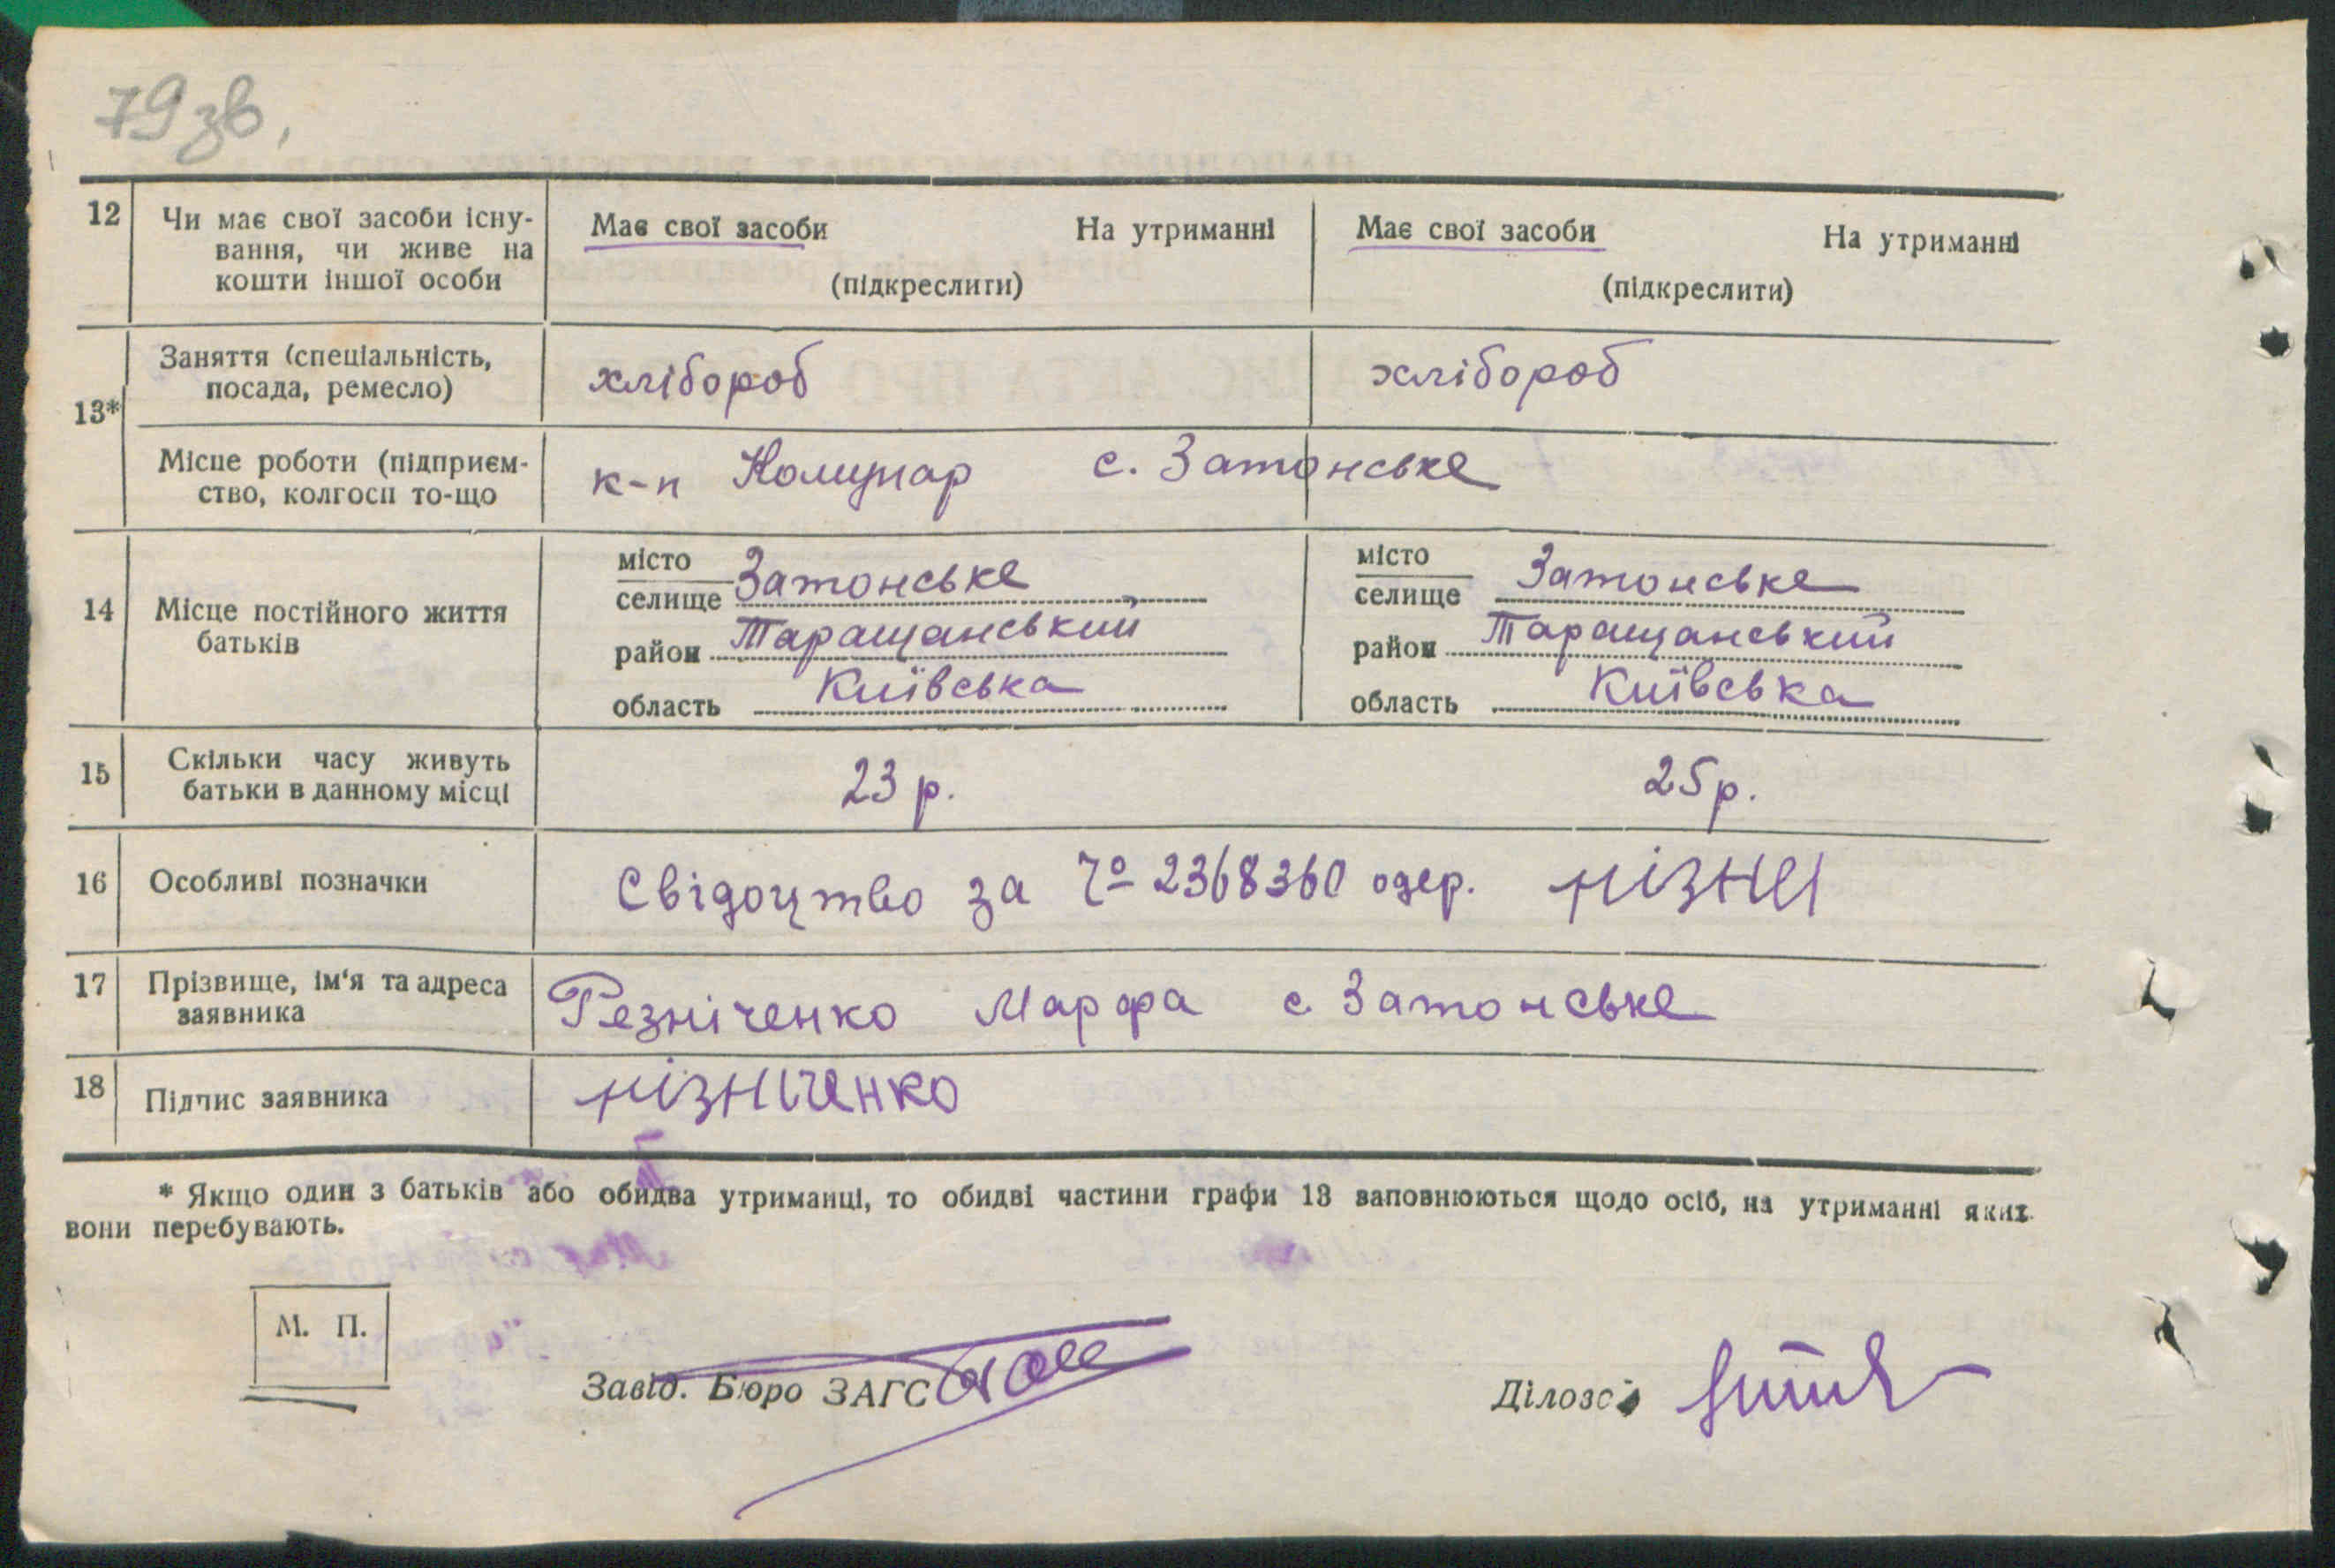 79 зв,
12 Чи має свої засоби існу- Має свої засоби На утриманні Має свої засоби На утриманні
вання, чи живе на
кошти іншої особи (підкреслити) (підкреслити)
13* Заняття (спеціальність, хлібороб хлібороб
посада, ремесло)
Місце роботи (підприєм- к-п Комунар с. Затонське
ство, колгосп то-що
14 Місце постійного життя
батьків
місто
селище Затонське
район Таращанський
область Київська
місто
селище Затонське
район Таращанський
область Київська
15 Скільки часу живуть 23 р. 25 р.
батьки в данному місці
16 Особливі позначки Свідоцтво за № 2368360 одер. різни
17 Прізвище, ім'я та адреса Резніченко Марфа с Затонське
заявника
18 Підпис заявника різніченко
* Якщо один з батьків або обидва утриманці, то обидві частини графи 13 заповнюються щодо осіб, на утриманні яких
вони перебувають.
М. П.
Завід. Бюро ЗАГС
Ділов